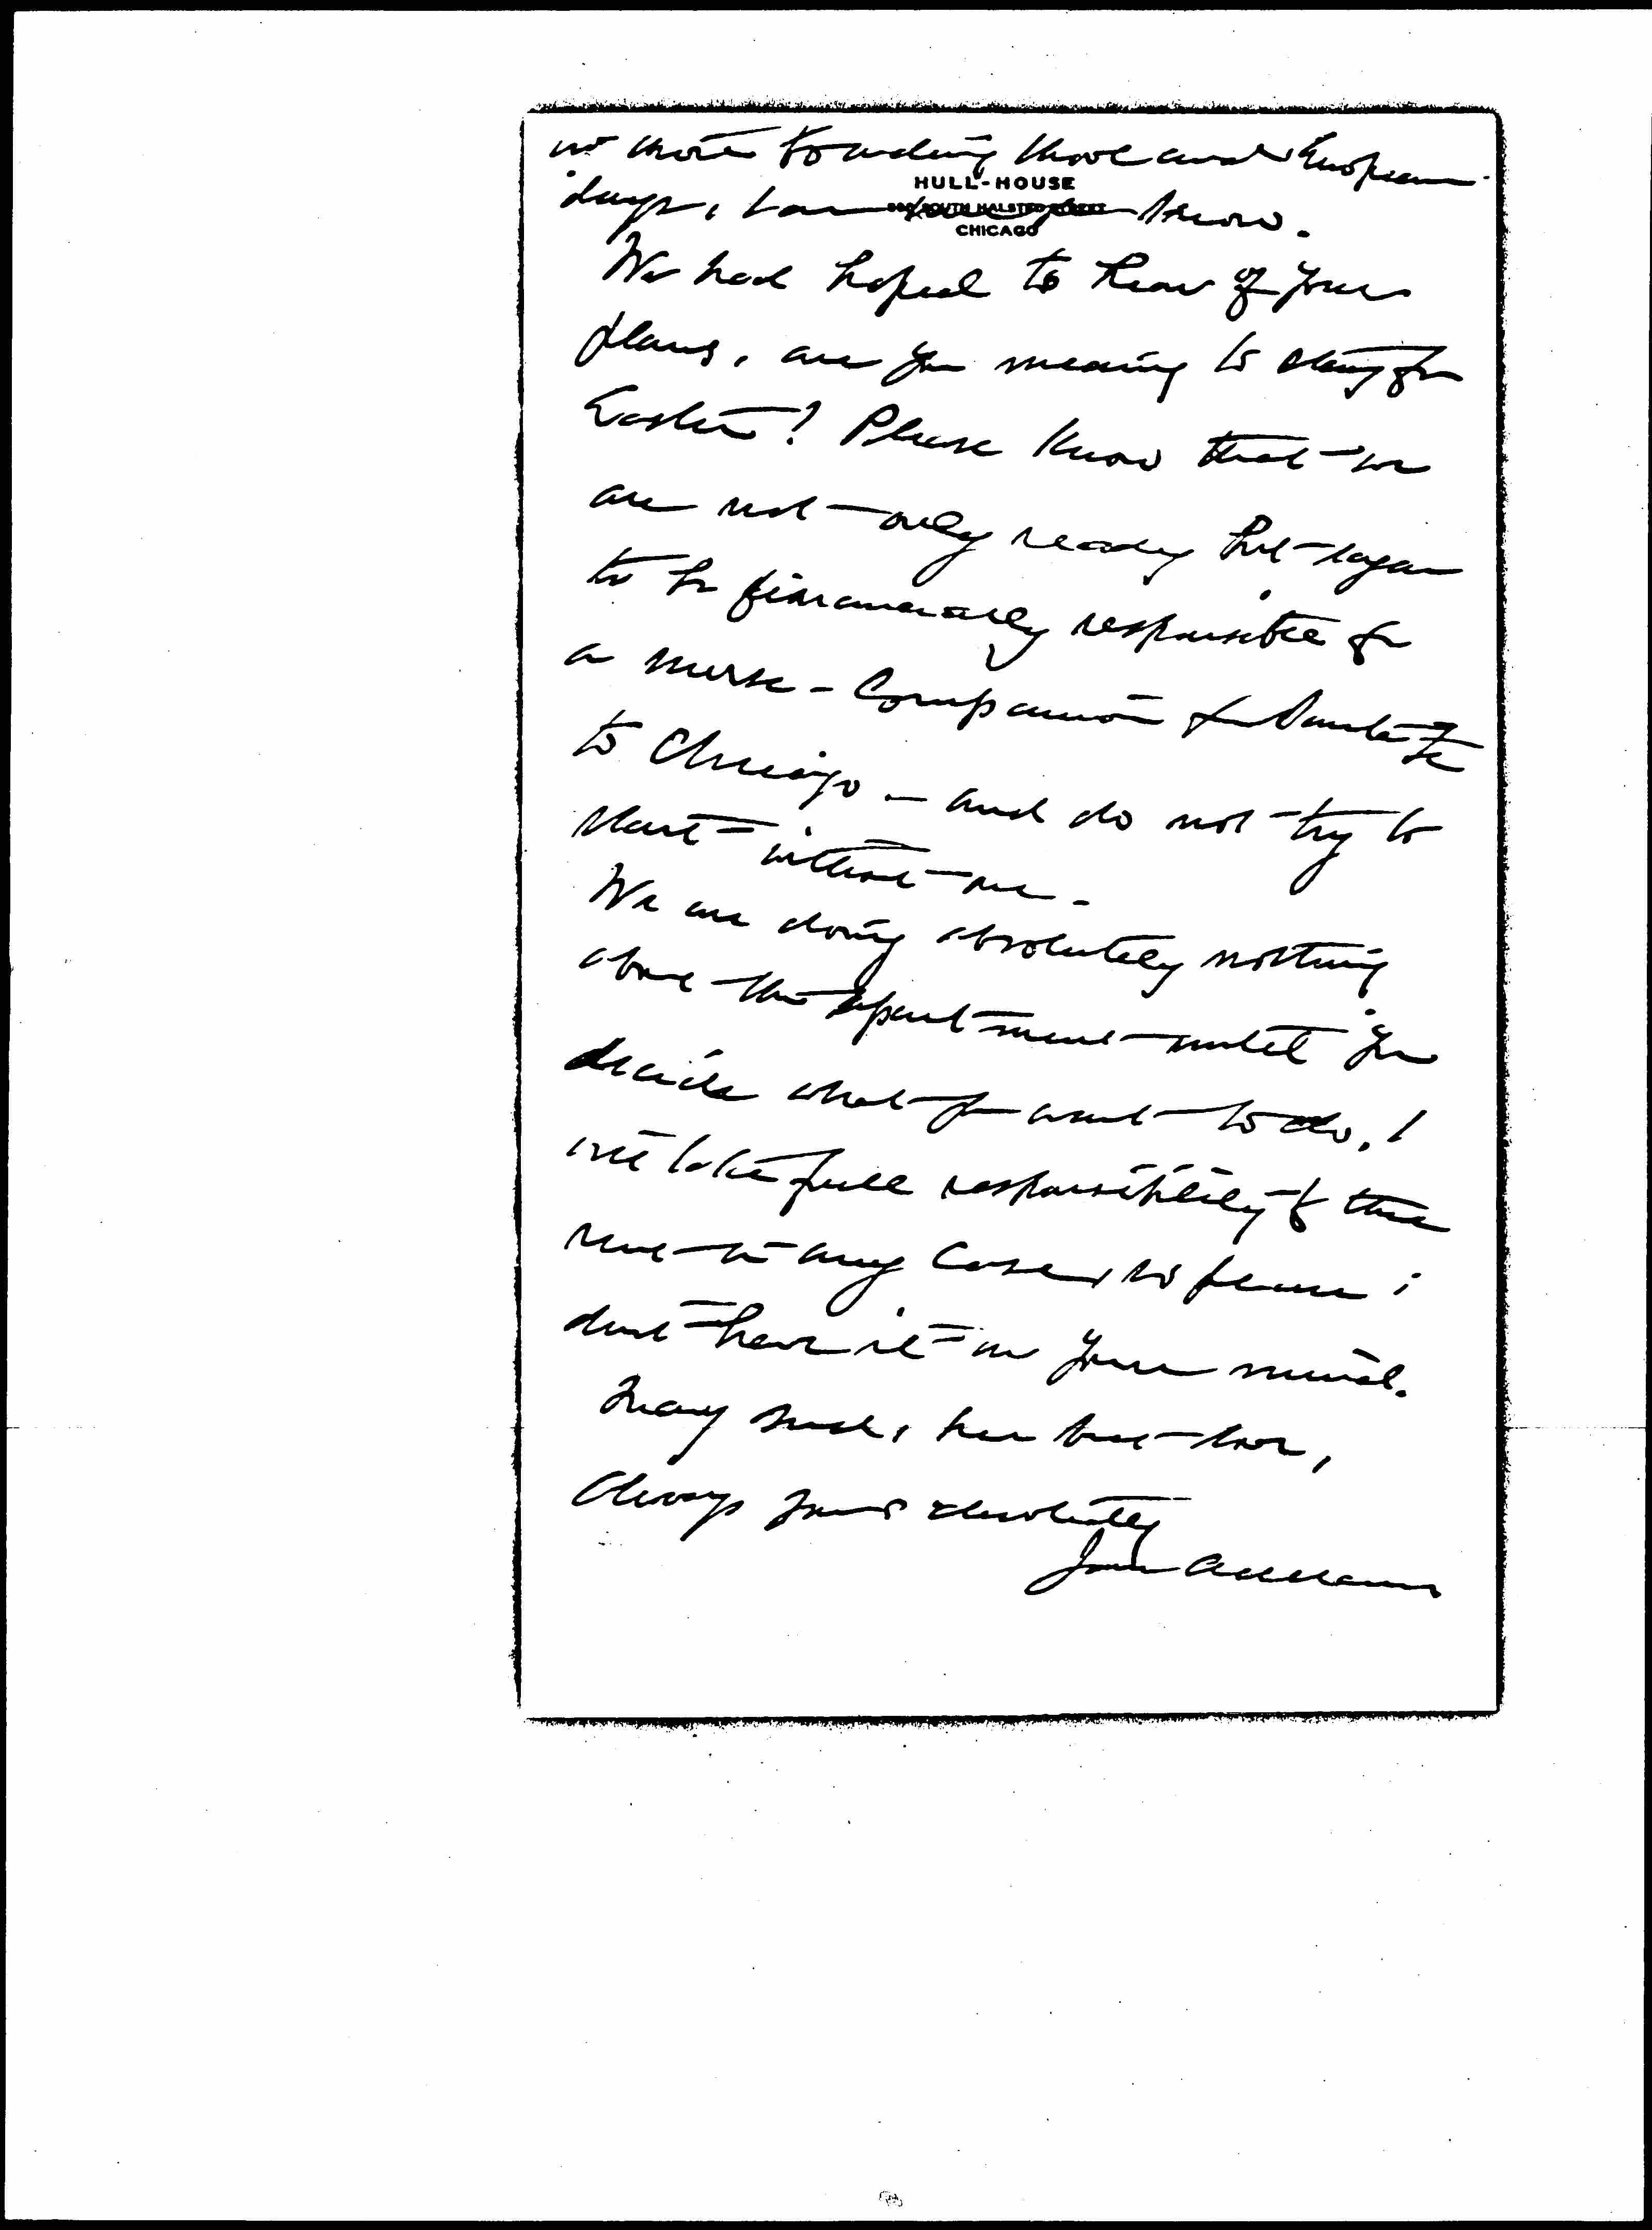 no more
HULL-HOUSE
800 SOUTH HALSTED STREET
CHICAGO
days, I am sure you know.
We had hoped to hear of your
plans, are you meaning to stay for
Easter? Please know that we
are not only ready but eager
to be financially responsible for
a nurse-companion from Santa Fe
to Chicago - and do not try to
start without one.
We are doing absolutely nothing
about the apartment until you
decide what you want to do. I
will take full responsibility of the
rent in any case, so please
don't have it on your mind.
Mary sends her best love,
Always yours devotedly
Jane Addams